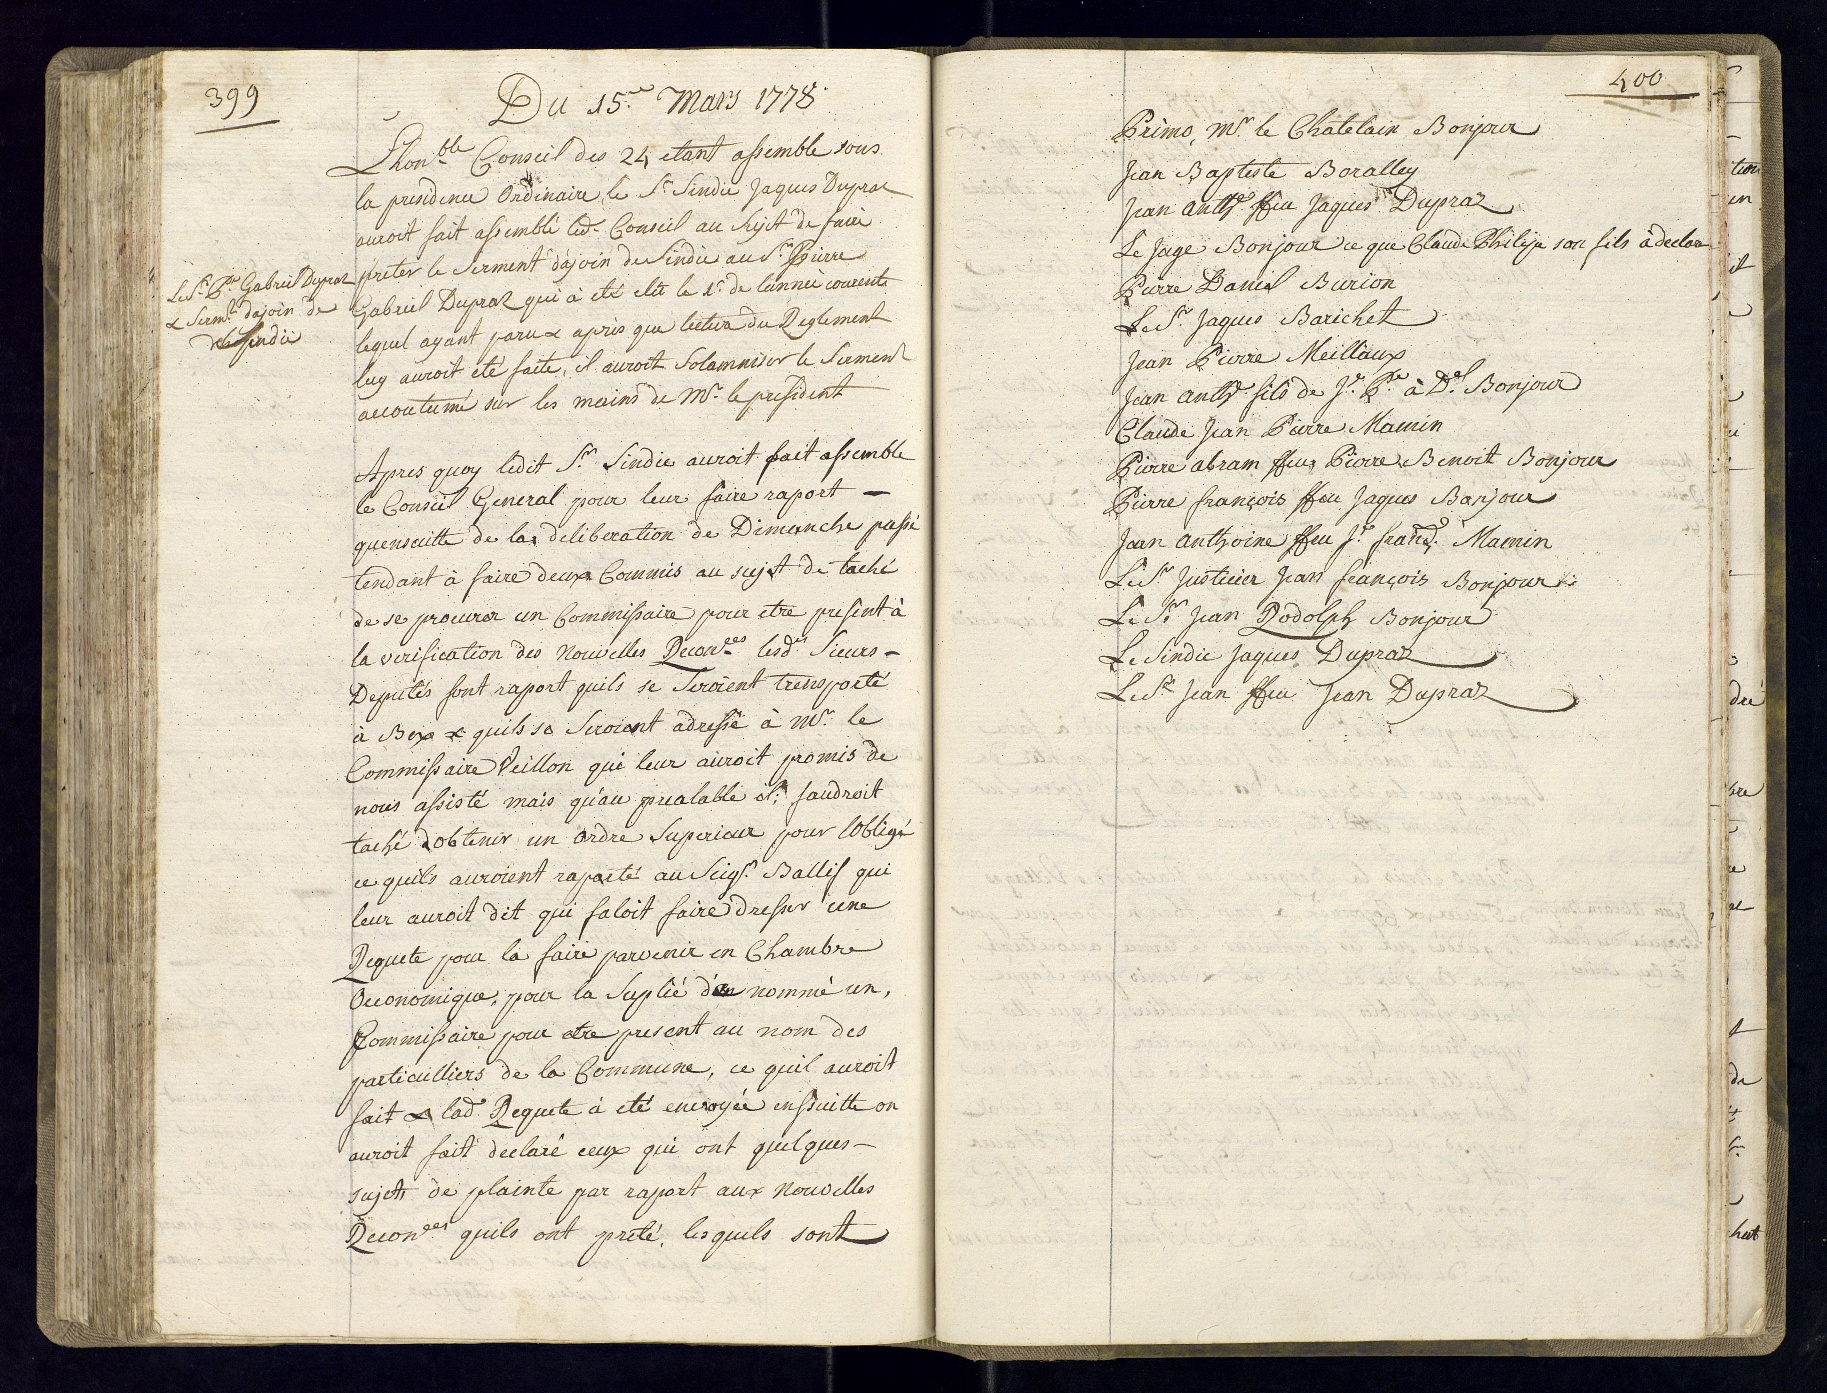 399
Du 15.me Mars 1778
Lhon.ble Conseil des 24 etant assemble sous
la presidence Ordinaire, le Sr Sindic Jaques Dupraz
auroit fait assemblé led. Conseil au Sujet de faire
preter le Serment dajoin de Sindic au Sr. Pierre
Gabriel Dupraz qui à eté elû le 1r. de lannèe courente
lequel ayant paru & apris que lecture du Reglement
luy auroit eté faite, il auroit Solamniser le Serment
accoutumé sur les mains de Mr. le president
Le Sr. Pre Gabriel Dupraz
& Serm.t dajoin de
Sindic
Apres quoy ledit Sr. Sindic auroit fait assemble
le Conseil General pour leur faire raport —
quensuitte de la deliberation de Dimanche passé
tendant à faire deux Commis au sujet de taché
de se procurer un Commissaire pour etre present à
la verification des nouvelles Recon.ces lesd.ts Sieurs —
Deputés font raport quils se Seroient trensporté
à Bex & quils se Seroient adressé à Mr. le
Commissaire Veillon qui leur auroit promis de
nous assisté mais qu'au prealable il faudroit
taché dobtenir un ordre Superieur pour lobligé
ce quils auroient raporté au Seigr. Ballif qui
leur auroit dit qui faloit faire dresser une
Requete pour la faire parvenir en Chambre
Oeconomique, pour la Suplié d'en nommé un,
Commissaire pour etre present au nom des
particulliers de la Commune, ce quil auroit
fait & lad. Requete à eté envoyée ensuitte on
auroit fait declaré ceux qui ont quelques —
sujets de plainte par raport aux nouvelles
Recon.ces quils ont prêté, lesquels sont
400
Primo, Mr. le Chatelain Bonjour
Jean Baptiste Boralley
Jean Anth.e ffeu Jaques Dupraz
Le Juge Bonjour ce que Claude Philipe son fils à declaré
Pierre Daniel Burion
Le Sr. Jaques Barichet
Jean Pierre Meillaux
Jean Anth.e fils de J.n P.re à D.el Bonjour
Claude Jean Pierre Mamin
Pierre abram ffeu Pierre Benoit Bonjour
Pierre françois ffeu Jaques Bonjour
Jean Anthoine ffeu J.n franç.s Mamin
Le Sr. Justicier Jean françois Bonjour
Le Sr. Jean Rodolph Bonjour
Le Sindic Jaques Dupraz
Le Sr. Jean ffeu Jean Dupraz